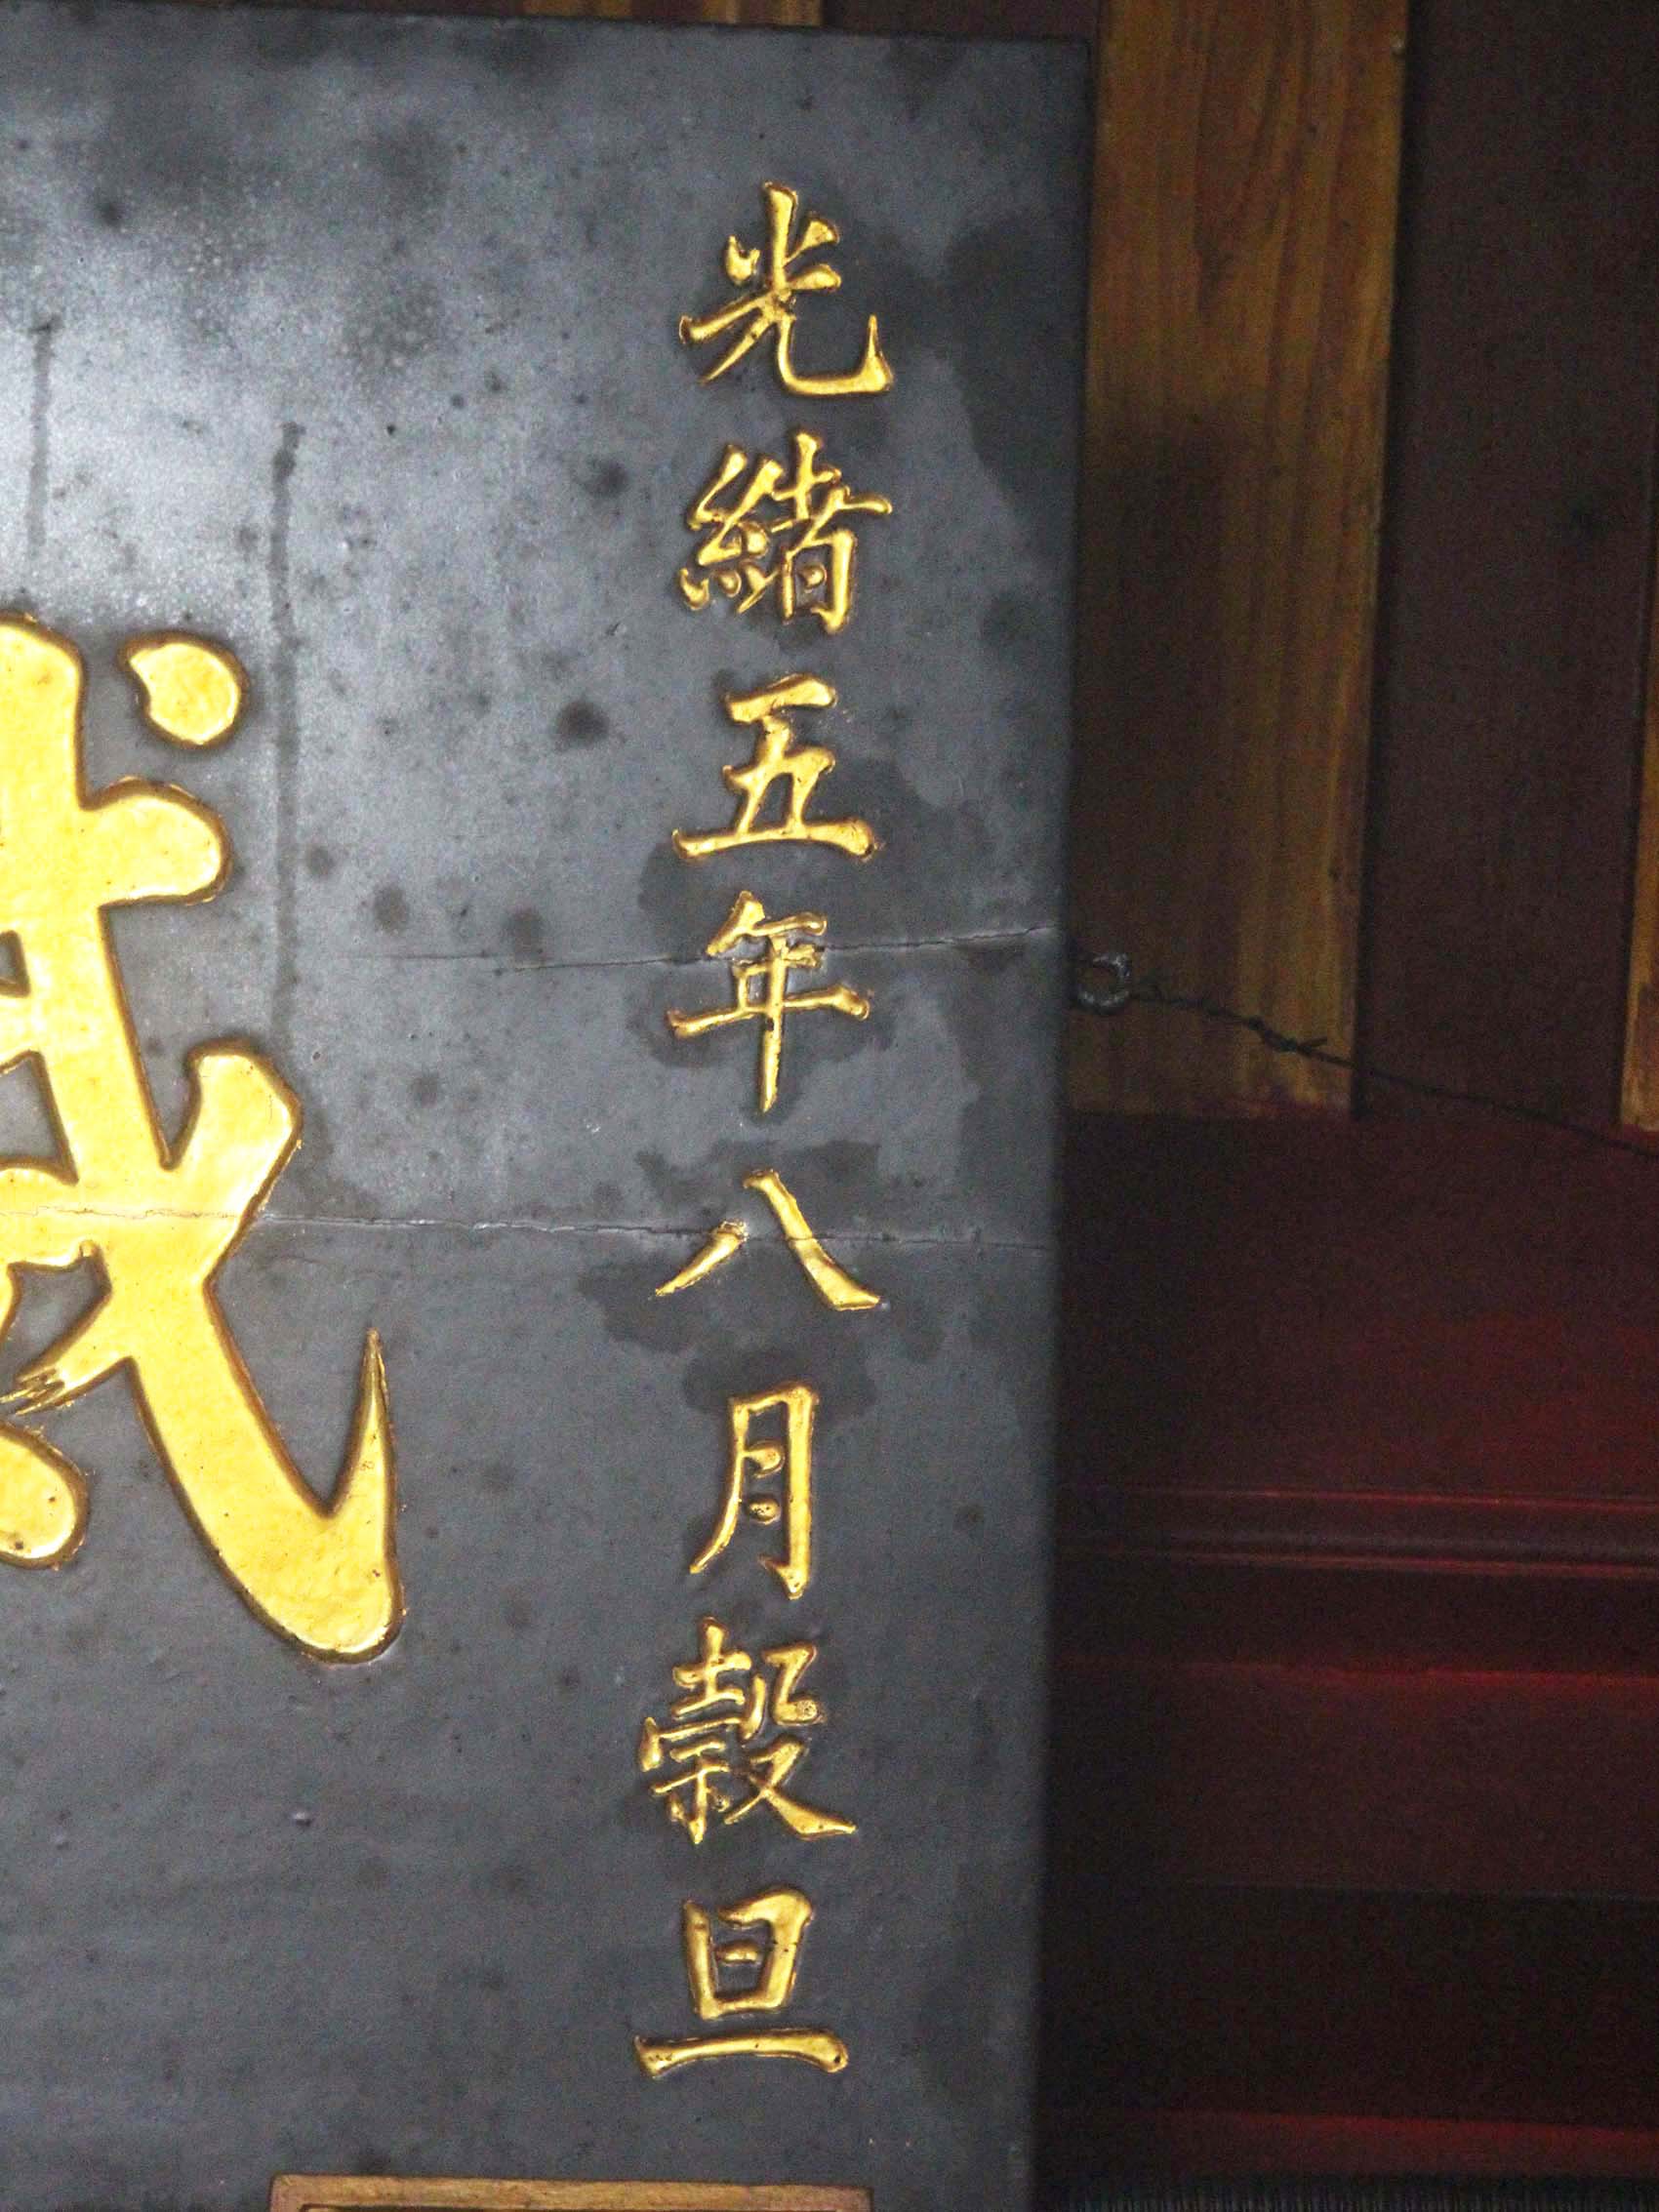 光緒五年八月穀旦